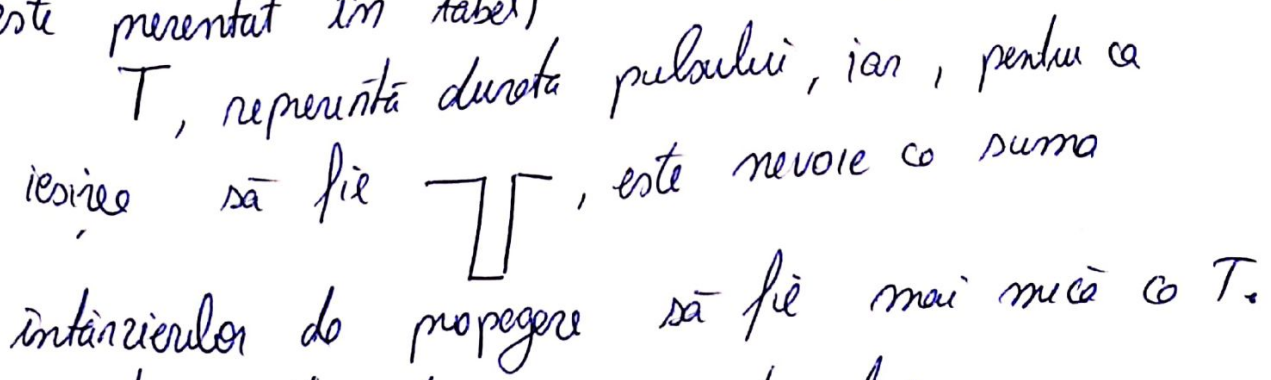 este prezentat în tabel)
T, reprezintă durata pulsului, iar, pentru ca
ieșirea să fie , este nevoie ca suma
întârzierilor de propagare să fie mai mică ca T.